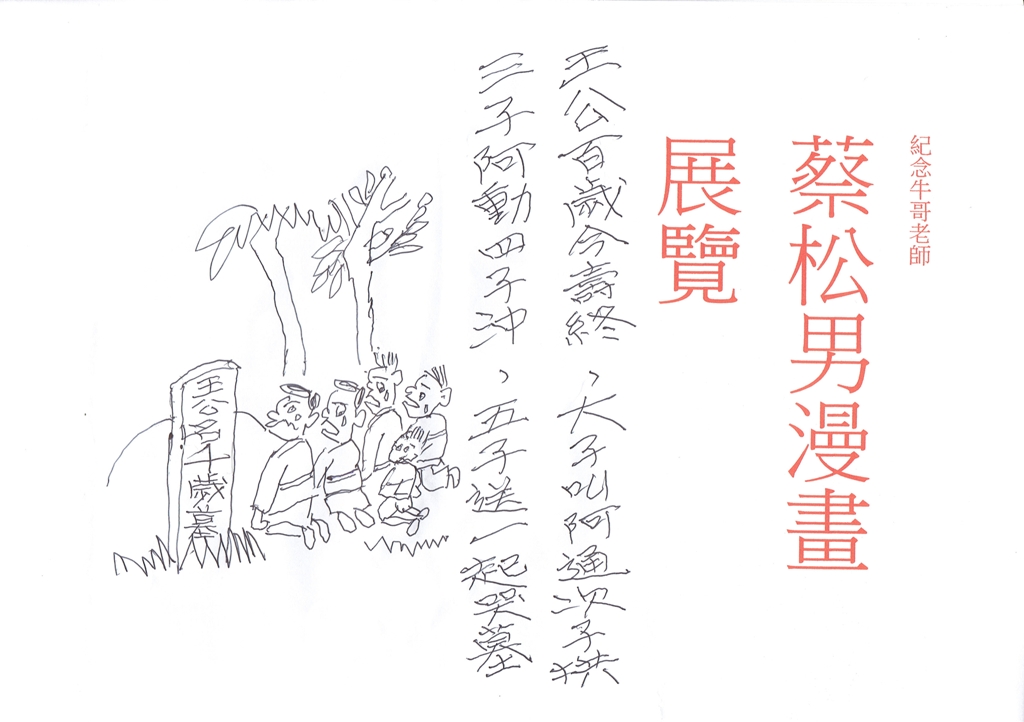 紀念牛哥老師
蔡松男漫畫
展覽
王公百歲今壽終、大子叫阿通次子拱
三子阿動四子沖、五子送一起哭墓
王公名千歲墓